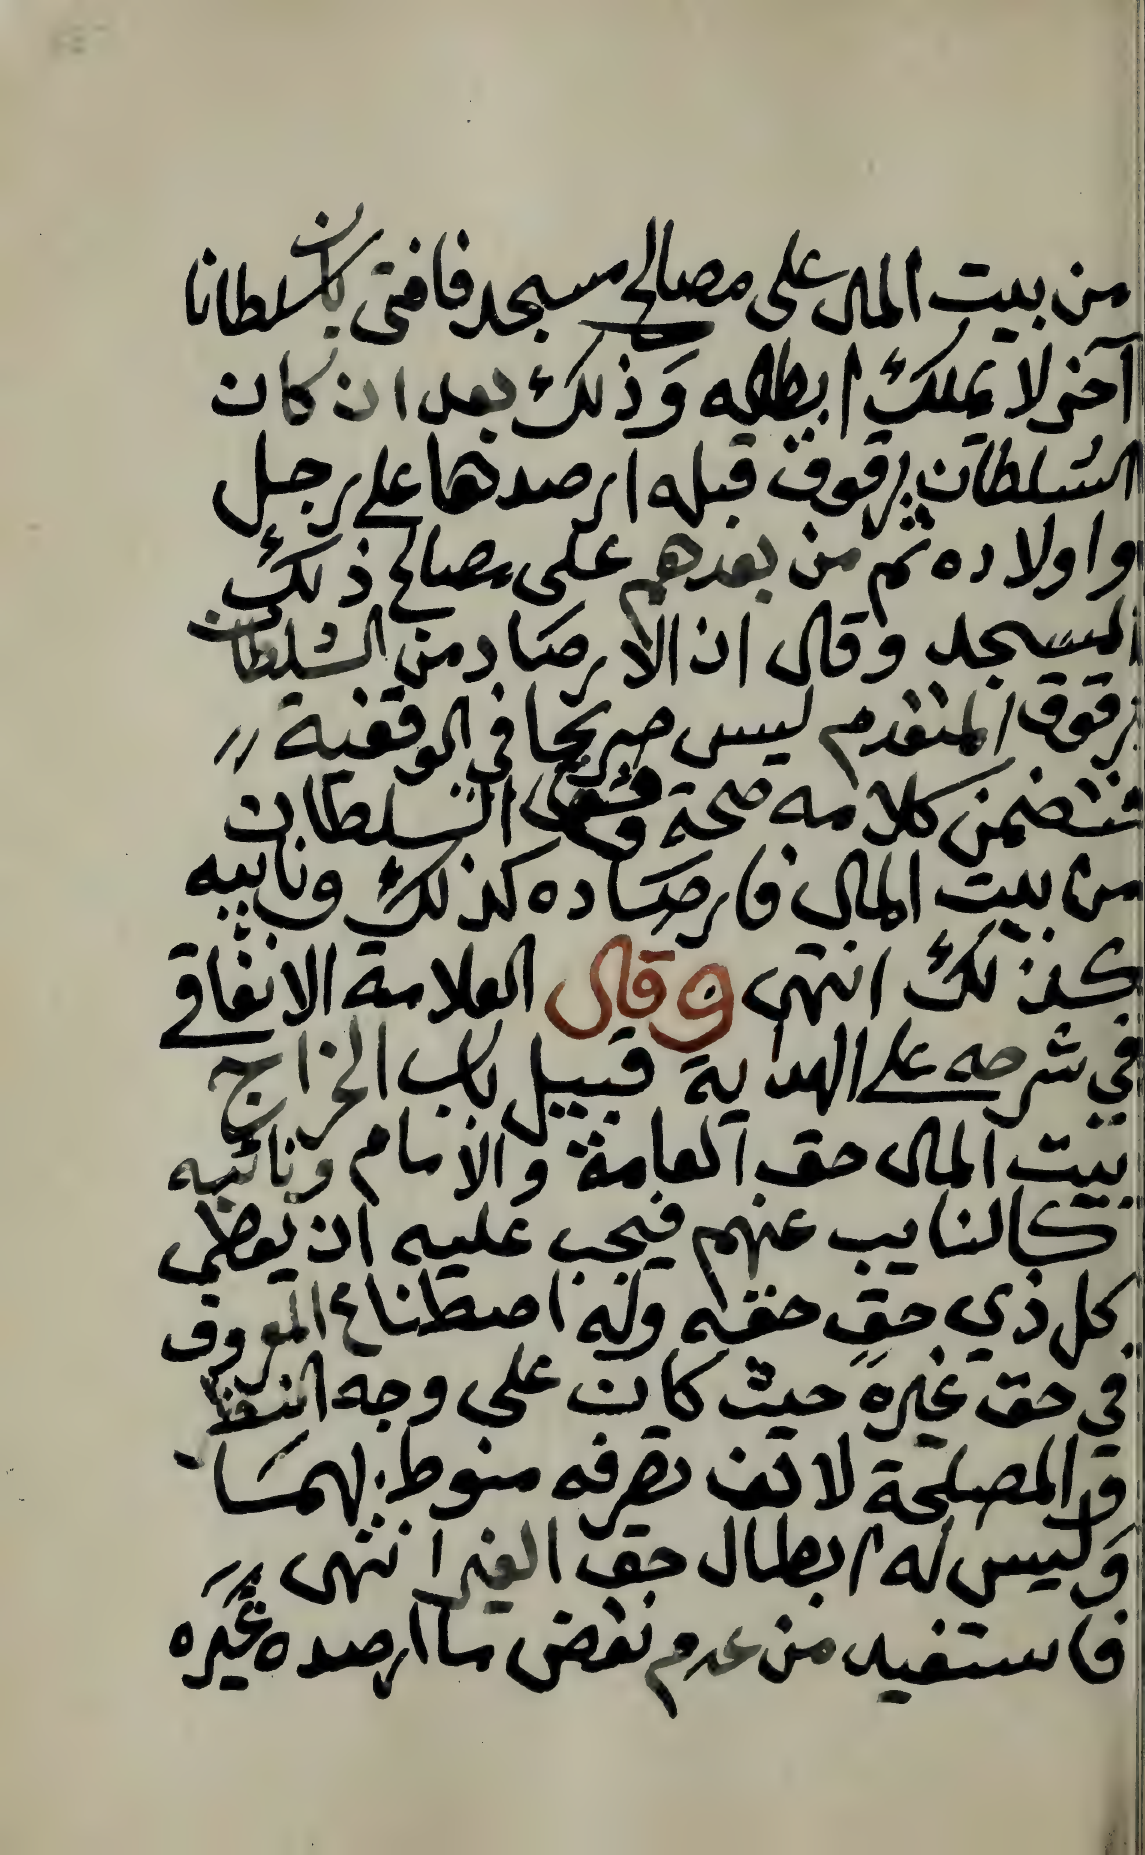 من بيت المال على مصالح مسجد فافتى بان سلطانا
آخر لا يملك ابطاله وذلك بعد ان كان
السلطان برقوق قبله ارصدها على رجل
واولاده ثم من بعدهم على مصالح ذلك
المسجد وقال ان الارصاد من السلطان
برقوق المتقدم ليس صريحا في الوقفية
فتضمن كلامه صحة وقف السلطان
من بيت المال فارصاده كذلك ونايبه
كذلك انتهى وقال العلامة الاتقاقي
في شرحه على الهداية قبيل باب الخراج
بيت المال حق العامة والامام ونائبه
كالنايب عنهم فيجب عليه ان يعطي
كل ذي حق حقه وله اصطناع المعروف
في حق غيره حيث كان على وجه النظر
والمصلحة لان تصرفه منوط بهما
وليس له ابطال حق الغير انتهى
فاستفيد من عدم نقض ما ارصده غيره